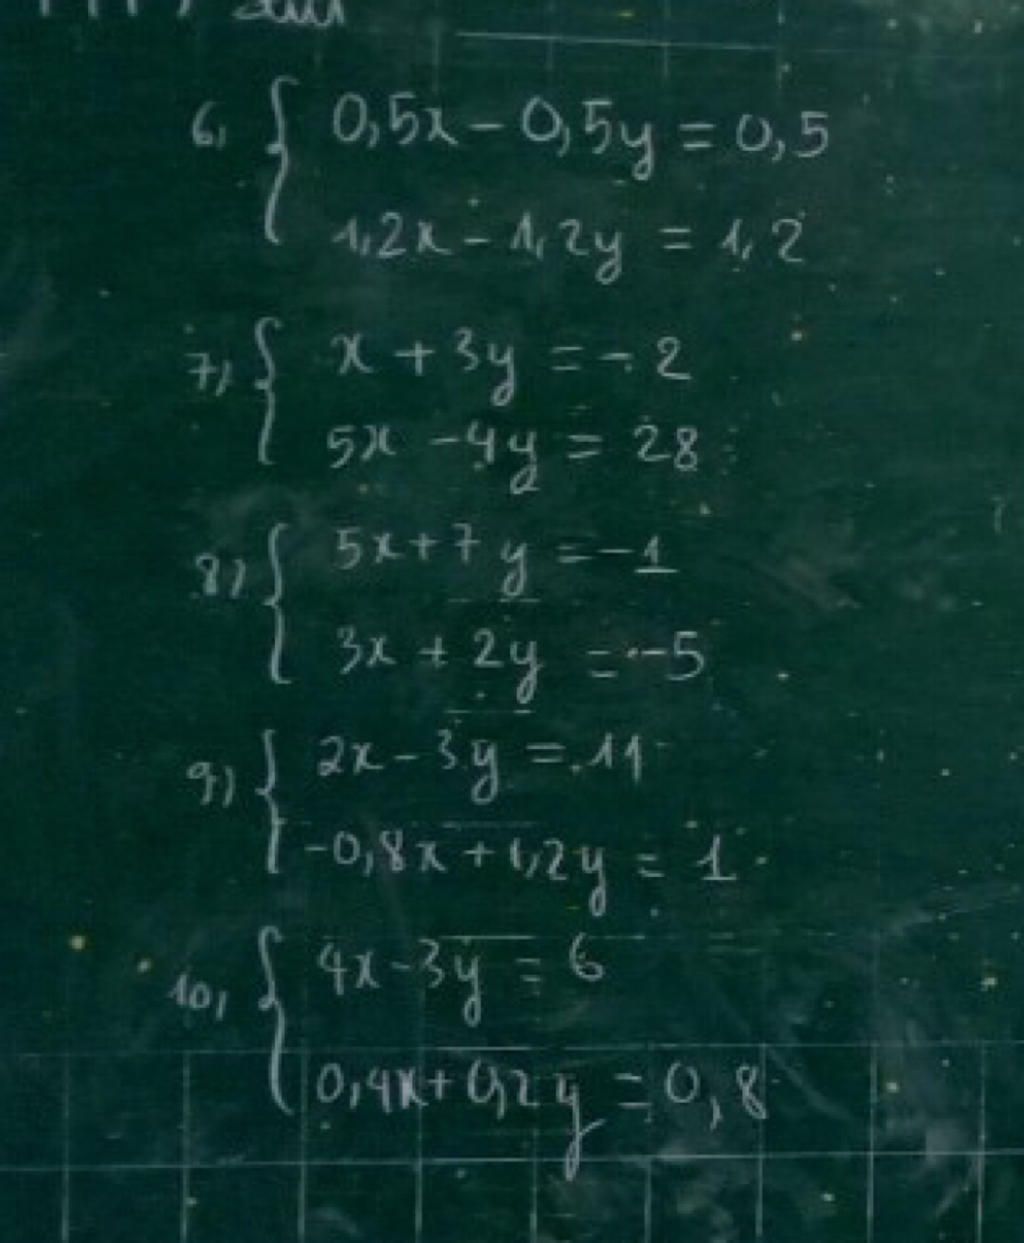 6, { 0,5x - 0,5y = 0,5
1,2x - 1,2y = 1,2
7, { x + 3y = -2
5x - 4y = 28
8) { 5x + 7y = -1
3x + 2y = -5
9) { 2x - 3y = 11
-0,8x + 1,2y = 1
10, { 4x - 3y = 6
0,4x + 0,2y = 0,8